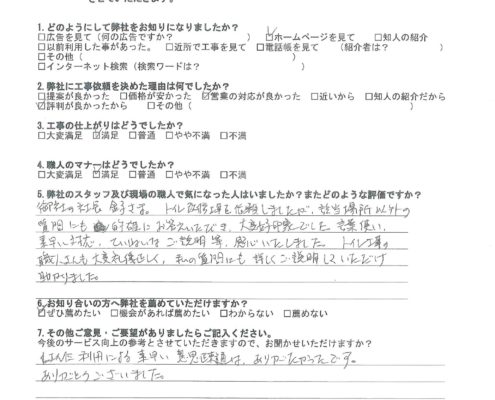 させていただきます。
1. どのようにして弊社をお知りになりましたか？
□広告を見て（何の広告ですか？　　　　　　　）☑ホームページを見て　□知人の紹介
□以前利用した事があった。　□近所で工事を見て　□電話帳を見て　（紹介者は？　　　　　）
□その他（　　　　　　　　　　　　　　　　　）
□インターネット検索（検索ワードは？　　　　　　　　　）
2. 弊社に工事依頼を決めた理由は何でしたか？
□提案が良かった　□価格が安かった　☑営業の対応が良かった　□近いから　□知人の紹介だから
☑評判が良かったから　□その他（　　　　　　　　　　　　　　　）
3. 工事の仕上がりはどうでしたか？
□大変満足　☑満足　□普通　□やや不満　□不満
4. 職人のマナーはどうでしたか？
□大変満足　☑満足　□普通　□やや不満　□不満
5. 弊社のスタッフ及び現場の職人で気になった人はいましたか？またどのような評価ですか？
御社の社長 さま。トイレ改修工事を依頼しましたが、該当場所以外の
質問にも 的確に お答えいただき、大変好印象でした。言葉使い、
素早い対応、ていねいな ご説明 等、感心いたしました。トイレ工事の
職人さんも大変礼儀正しく、私の質問にも 詳しく ご説明していただけ
助かりました。
6. お知り合いの方へ弊社を薦めていただけますか？
☑ぜひ薦めたい　□機会があれば薦めたい　□わからない　□薦めない
7. その他ご意見・ご要望がありましたらご記入ください。
今後のサービス向上の参考とさせていただきますので、お聞かせいただけますか？
利用による 素早い 意思疎通は、ありがたかったです。
ありがとうございました。